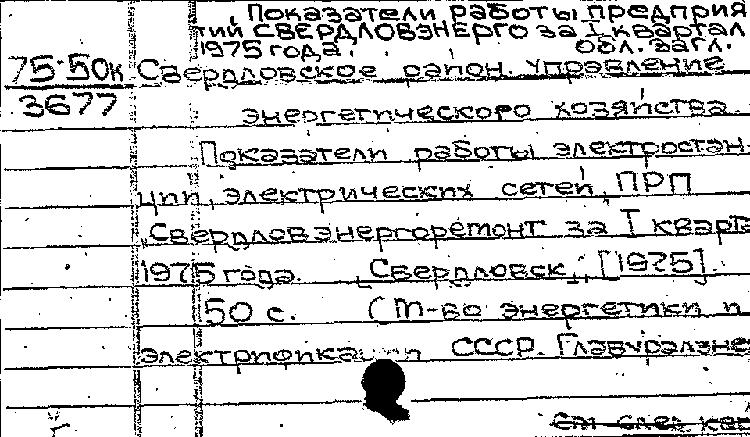 Показатели работы предприя
тий СВЕРДЛОВЭНЕРГО за I квартал
1975 года. Обл. загл.
75-50к Свердловское район. управление
3677
энергетического хозяйства
Показатели работы электростан-
ций, электрических сетей, ПРП
"Свердловэнергоремонт за I кварта
1975 года. Свердловск, [1975].
50 с. (М-во энергетики и
электрификации СССР. Главуралэне
см. след. кар